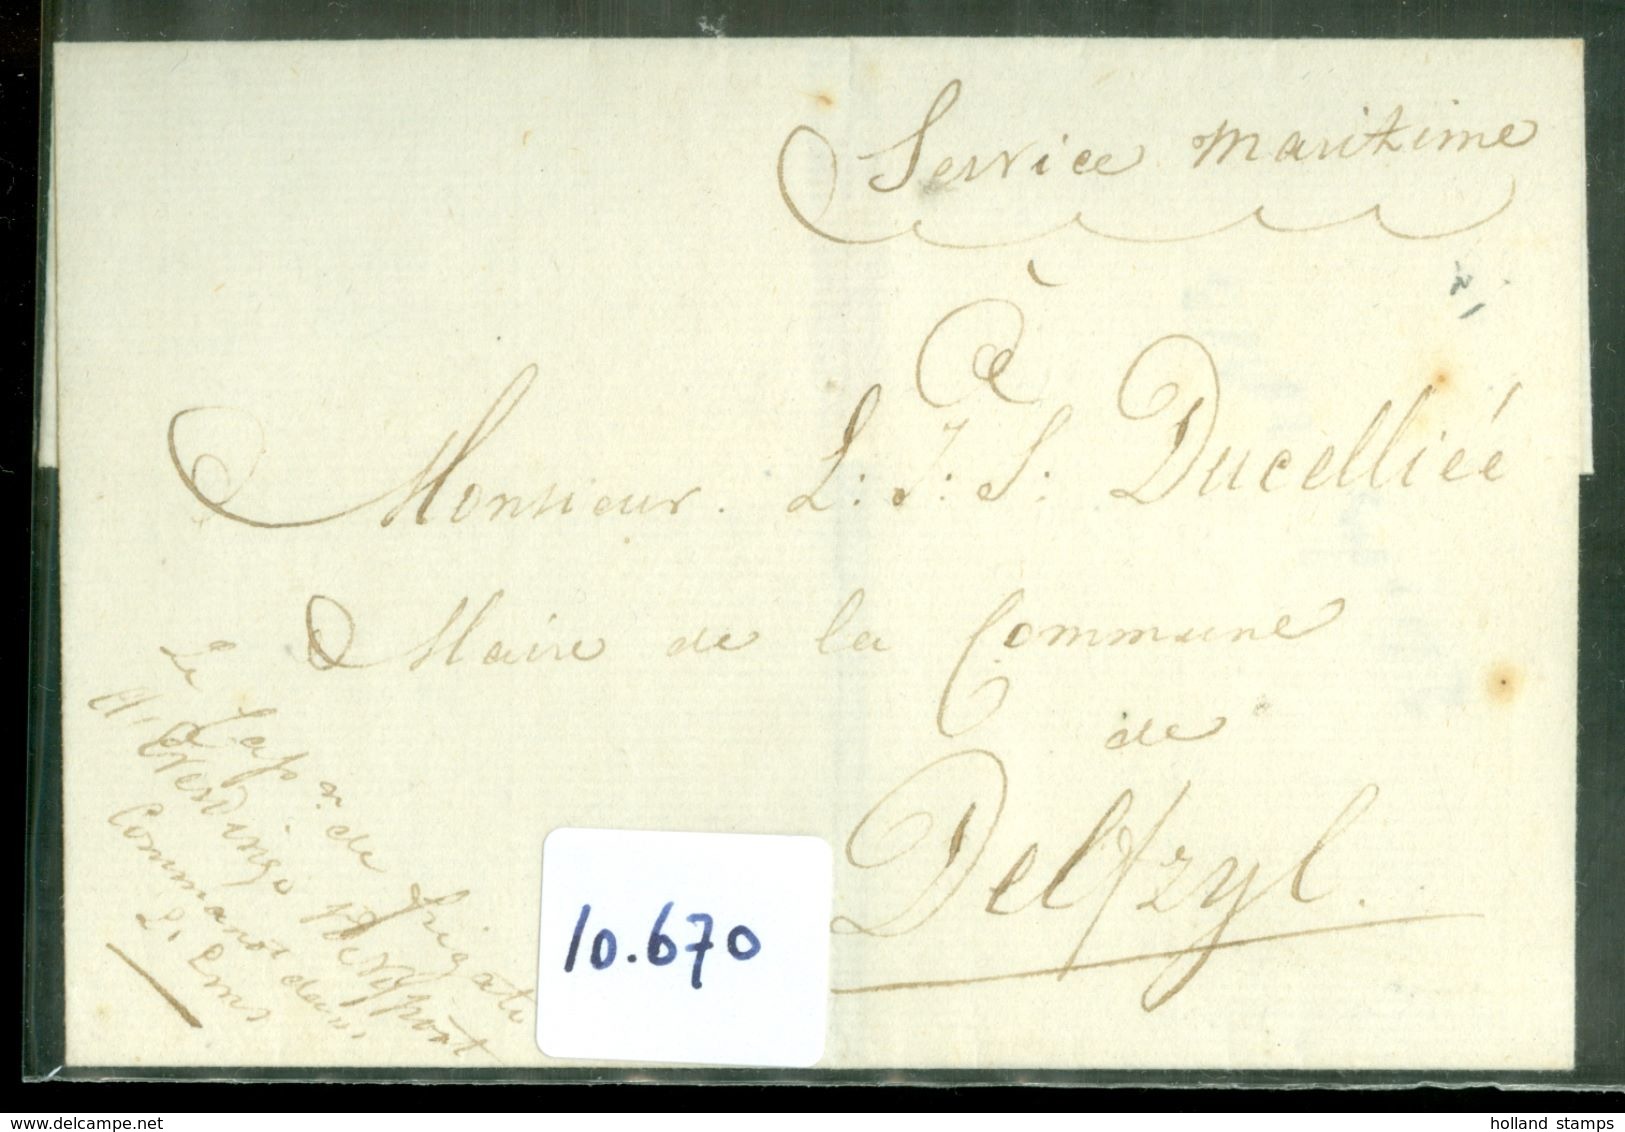 Service maritime
à
Monsieur L: J: S: Ducelliéé
Maire de la Commune
de
Delfzyl.
Le Capn. de frigate
Commandt dans
L'Ems
10.670
www.delcampe.net
holland stamps